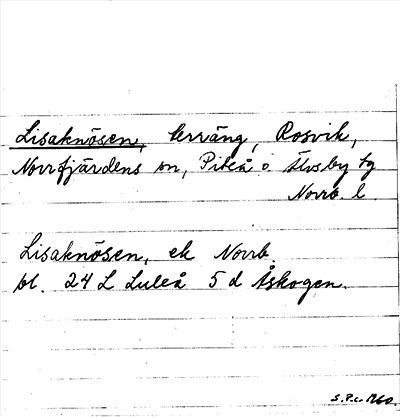 Lisaknösen, terräng, Rosvik,
Norrfjärdens sn, Piteå o. Älvsby tg
Norrb. l.
Lisaknösen, ek Norrb.
bl. 24 L Luleå 5 d Åskogen.
S.P.L. 1960.